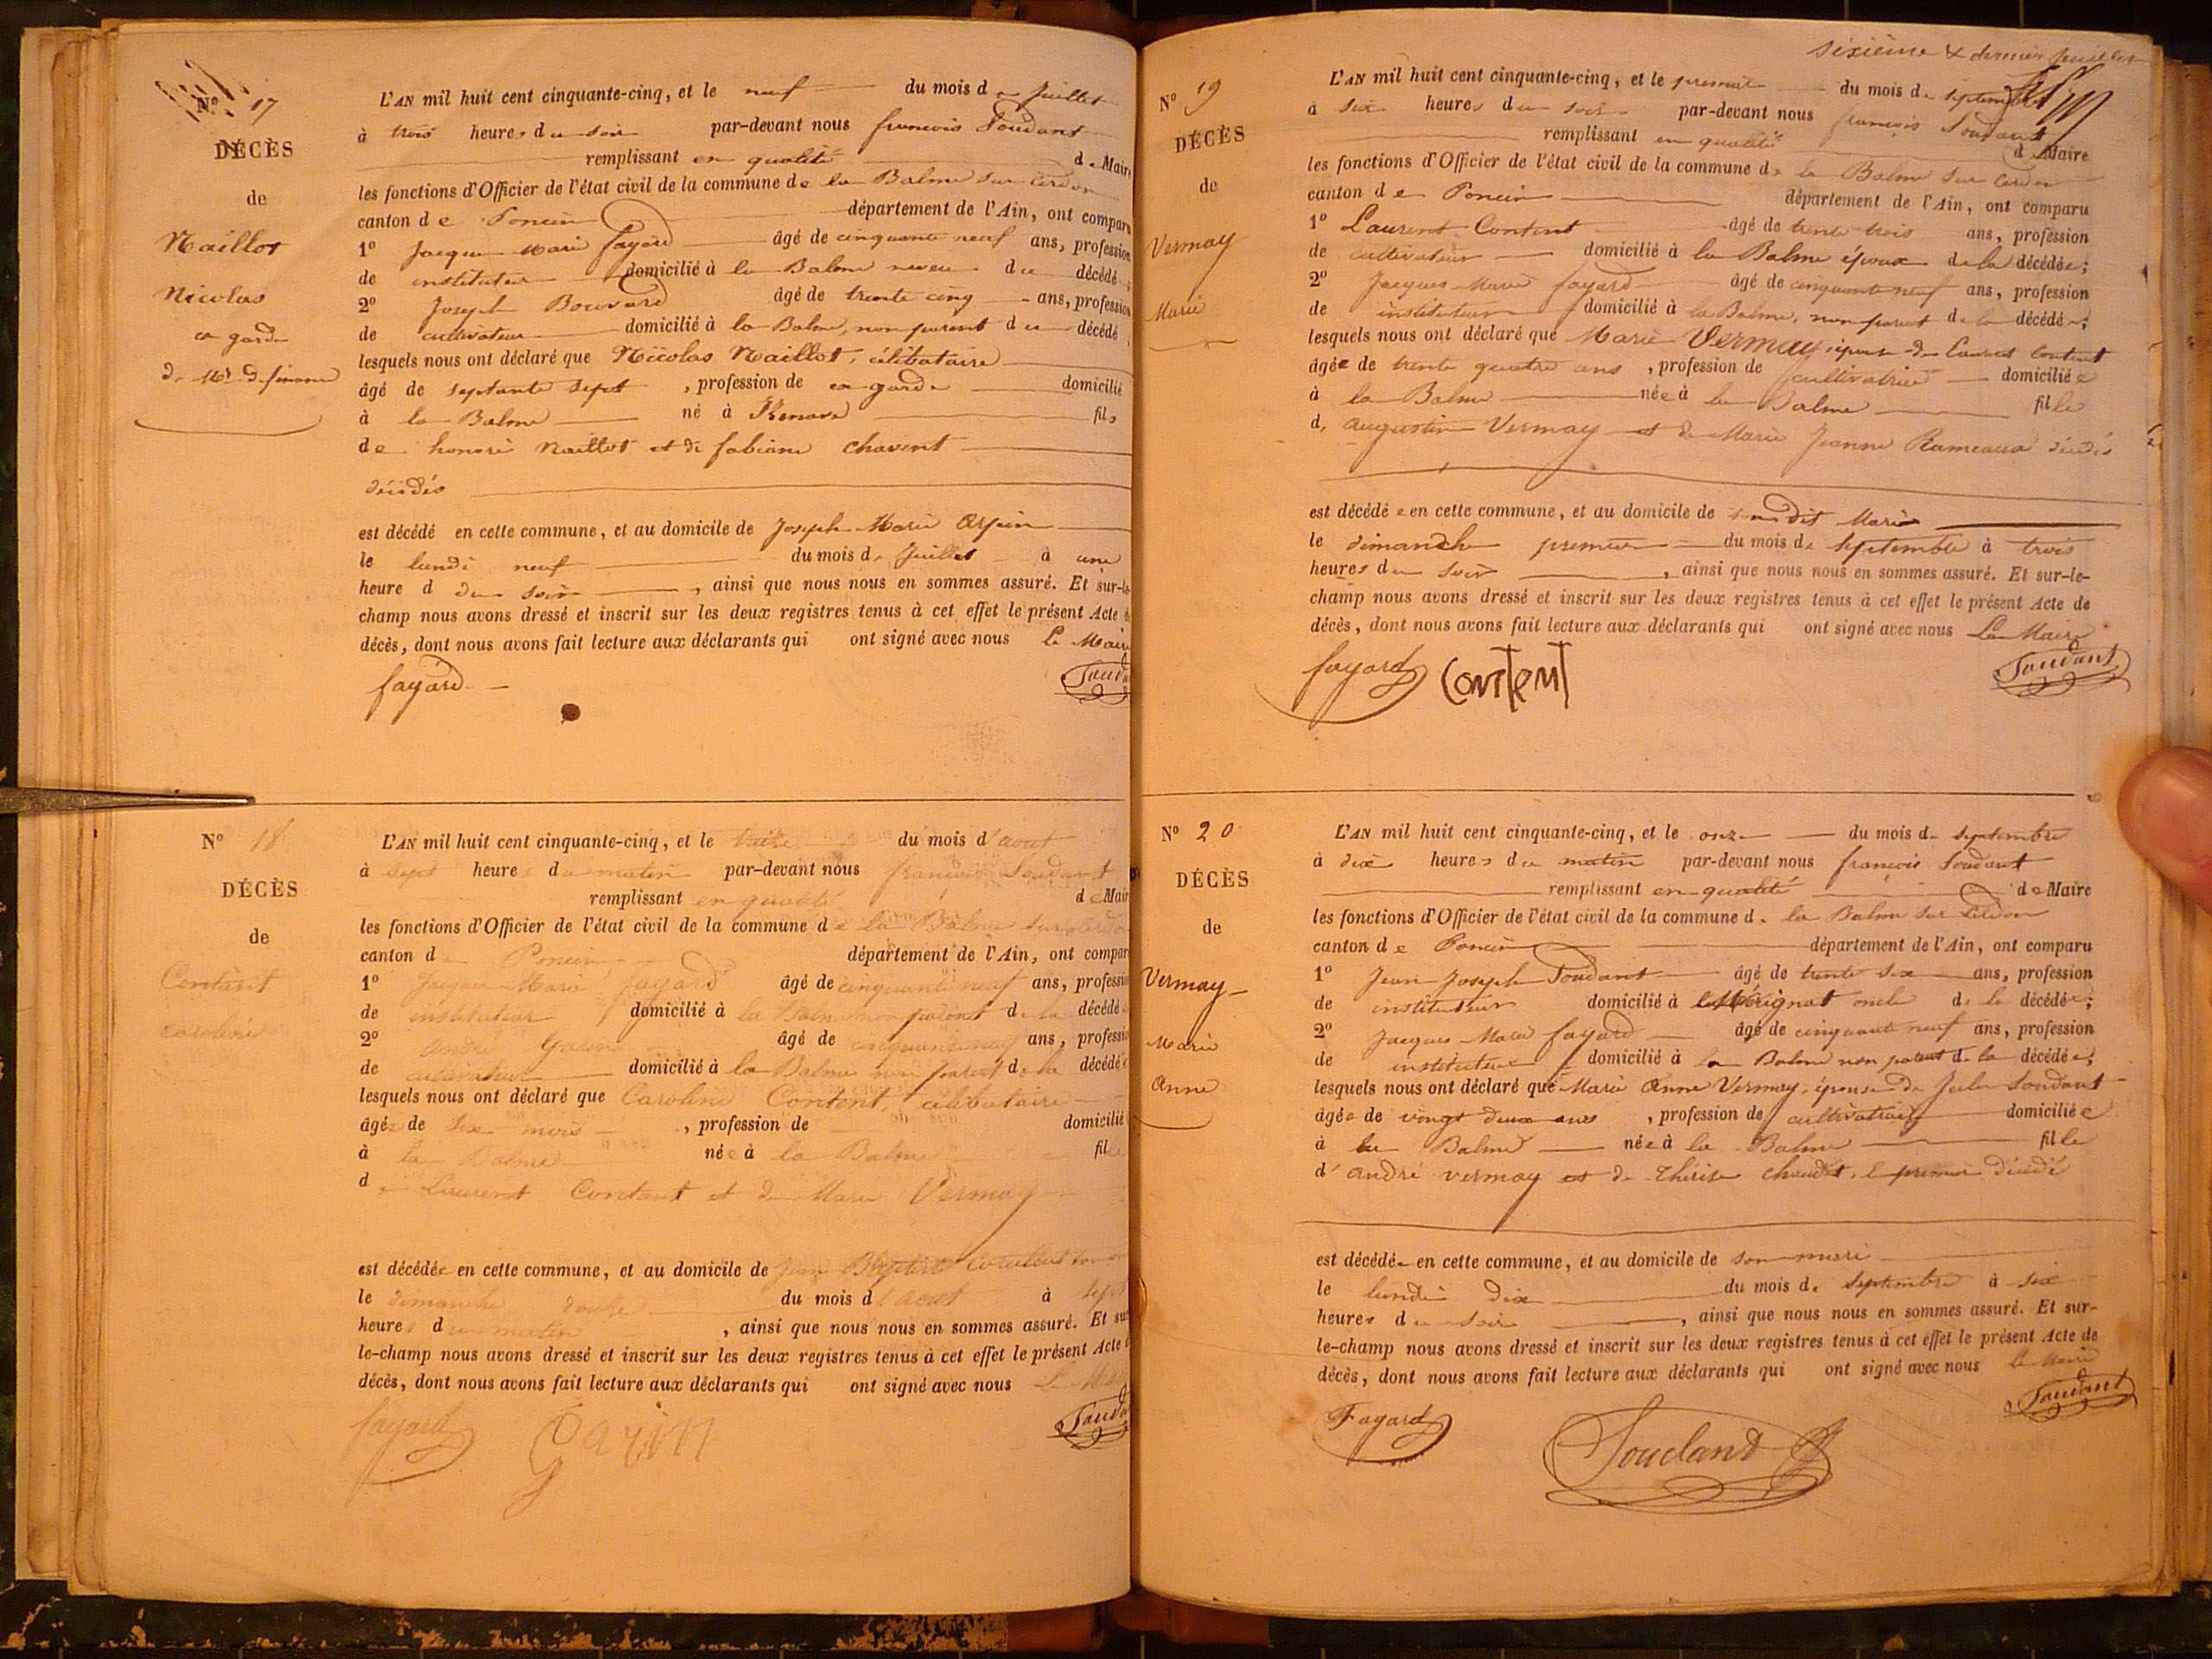 N° 17
DÉCÈS
de
Naillot
Nicolas
ex garde
L'AN mil huit cent cinquante-cinq, et le neuf du mois de Juillet
à trois heures du soir par-devant nous françois Soudant
remplissant en qualité de Maire
les fonctions d'Officier de l'état civil de la commune de la Balme sur Cerdon
canton de Poncin département de l'Ain, ont comparu
1° Jacques Marie fayard âgé de cinquante neuf ans, profession
de instituteur domicilié à la Balme neveu du décédé;
2° Joseph Bouvard âgé de trente cinq ans, profession
de cultivateur domicilié à la Balme, non parent du décédé;
lesquels nous ont déclaré que Nicolas Naillot, célibataire
âgé de septante sept, profession de ex garde domicilié
à la Balme né à fils
de honoré Naillot et de fabiane Chavent
décédés
est décédé en cette commune, et au domicile de Joseph Marie
le lundi neuf du mois de Juillet à une
heure d du soir, ainsi que nous nous en sommes assuré. Et sur-le-
champ nous avons dressé et inscrit sur les deux registres tenus à cet effet le présent Acte de
décès, dont nous avons fait lecture aux déclarants qui ont signé avec nous Le Maire
fayard Soudant
N° 18
DÉCÈS
de
Contant
Caroline
L'AN mil huit cent cinquante-cinq, et le du mois d'aout
à sept heures du matin par-devant nous françois Soudant
remplissant en qualité de Maire
les fonctions d'Officier de l'état civil de la commune de la Balme sur Cerdon
canton de Poncin département de l'Ain, ont comparu
1° Jacques Marie fayard âgé de cinquante neuf ans, profession
de instituteur domicilié à la Balme non parent de la décédée
2° André Garin âgé de cinquante neuf ans, profession
de cultivateur domicilié à la Balme non parent de la décédée
lesquels nous ont déclaré que Caroline Content, célibataire
âgée de six mois, profession de domicilié
à la Balme née à la Balme fille
de Laurent Contant et de Marie Vermay
est décédée en cette commune, et au domicile de Jean Baptiste
le dimanche douze du mois d'aout à sept
heures du matin, ainsi que nous nous en sommes assuré. Et sur-
le-champ nous avons dressé et inscrit sur les deux registres tenus à cet effet le présent Acte de
décès, dont nous avons fait lecture aux déclarants qui ont signé avec nous Le Maire
fayard Garin Soudant
sixième & dernier feuillet
N° 19
DÉCÈS
de
Vermay
Marie
L'AN mil huit cent cinquante-cinq, et le premier du mois de septembre
à six heures du soir par-devant nous françois Soudant
remplissant en qualité de Maire
les fonctions d'Officier de l'état civil de la commune de la Balme sur Cerdon
canton de Poncin département de l'Ain, ont comparu
1° Laurent Content âgé de trente trois ans, profession
de cultivateur domicilié à la Balme époux de la décédée;
2° Jacques Marie fayard âgé de cinquante neuf ans, profession
de instituteur domicilié à la Balme, non parent de la décédée;
lesquels nous ont déclaré que Marie Vermay, épouse de Laurent Content
âgée de trente quatre ans, profession de cultivatrice domiciliée
à la Balme née à la Balme fille
de augustin Vermay et de Marie Jeanne Rameaux décédés
est décédée en cette commune, et au domicile de sondit Mari
le dimanche premier du mois de septembre à trois
heures du soir, ainsi que nous nous en sommes assuré. Et sur-le-
champ nous avons dressé et inscrit sur les deux registres tenus à cet effet le présent Acte de
décès, dont nous avons fait lecture aux déclarants qui ont signé avec nous Le Maire
fayard Content Soudant
N° 20
DÉCÈS
de
Vermay
Marie
Anne
L'AN mil huit cent cinquante-cinq, et le onze du mois de septembre
à dix heures du matin par-devant nous françois Soudant
remplissant en qualité de Maire
les fonctions d'Officier de l'état civil de la commune de la Balme sur Cerdon
canton de Poncin département de l'Ain, ont comparu
1° Jean Joseph Soudant âgé de trente six ans, profession
de instituteur domicilié à Mérignat oncle de la décédée;
2° Jacques Marie fayard âgé de cinquante neuf ans, profession
de instituteur domicilié à la Balme non parent de la décédée;
lesquels nous ont déclaré que Marie Anne Vermay, épouse de Jules Soudant
âgée de vingt deux ans, profession de cultivatrice domiciliée
à la Balme née à la Balme fille
d'andré vermay et de thérèse chaudet, le premier décédé
est décédée en cette commune, et au domicile de son mari
le lundi dix du mois de septembre à six
heures du soir, ainsi que nous nous en sommes assuré. Et sur-
le-champ nous avons dressé et inscrit sur les deux registres tenus à cet effet le présent Acte de
décès, dont nous avons fait lecture aux déclarants qui ont signé avec nous le Maire
Fayard Soudand Soudant